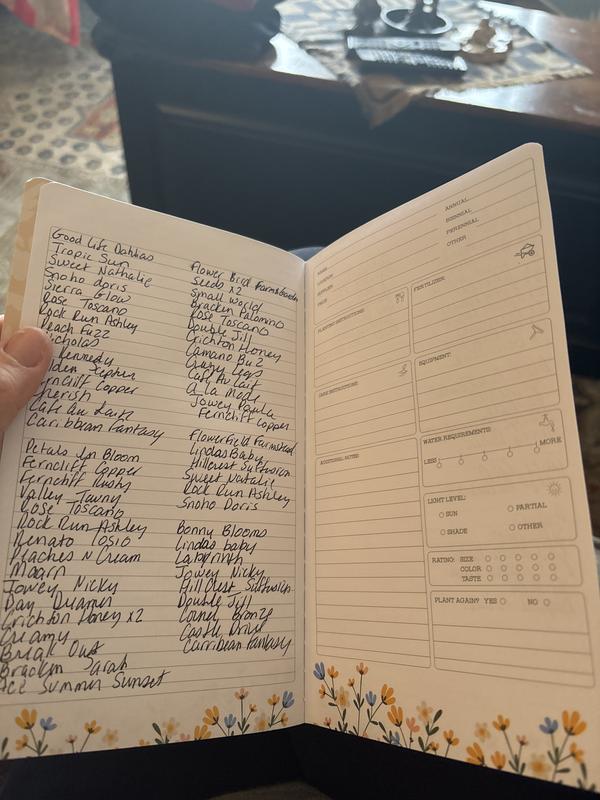 Good Life Dahlias
Tropic Sun
Sweet Nathalie
Snoho doris
Sierra Glow
Rose Toscano
Rock Run Ashley
Peach Fuzz
Nicholas
Kennedy
lden Sephter
rncliff Copper
Cherish
Cafe au Lait
Caribbean Fantasy
Petals In Bloom
Ferncliff Copper
Ferncliff Rusty
Valley Tawny
Rose Toscano
Rock Run Ashley
Renato Tosio
Peaches N Cream
Maarn
Jowey Nicky
Day Dreamer
Crichton Honey x2
Creamy
Break Out
Bracken Sarah
Ace Summer Sunset
Flower Bird Farm&Garden
Seeds x2
Small World
Bracken Palomino
Rose Toscano
Double Jill
Crichton Honey
Camano Buz
Crazy Legs
Cafe Au Lait
A la Mode
Jowey Paula
Ferncliff Copper
Flowerfield Farmstead
Lindas Baby
Hillcrest Suffusion
Sweet Natalie
Rock Run Ashley
Snoho Doris
Bonny Blooms
Lindas baby
Labyrinth
Jowey Nicky
Hillcrest Suffusion
Double Jill
Cornel Bronze
Castle Drive
Carribean Fantasy
ANNUAL
BIENNIAL
PERENNIAL
OTHER
NAME
PRICE
PLANTING INSTRUCTIONS:
FERTILIZER:
CARE INSTRUCTIONS:
EQUIPMENT:
ADDITIONAL NOTES:
WATER REQUIREMENTS:
LESS MORE
LIGHT LEVEL:
SUN PARTIAL
SHADE OTHER
RATING: SIZE
COLOR
TASTE
PLANT AGAIN? YES NO